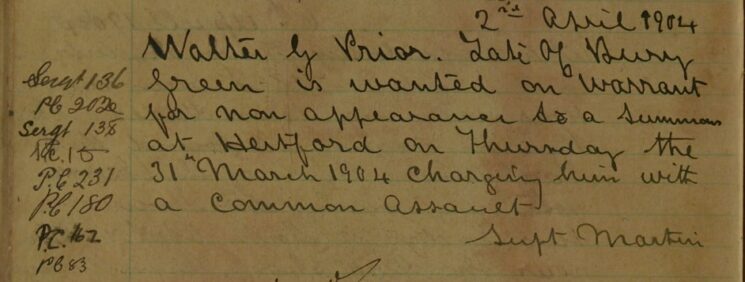 2nd April 1904
Walter G Prior. Late Of Bury
Green is wanted on Warrant
for non appearance to a Summons
at Hertford on Thursday the
31st March 1904 Charging him with
a Common Assault
Supt Martin
Sergt 136
PC 202
Sergt 138
P.C 231
P.C 180
P.C. 162
PC 83